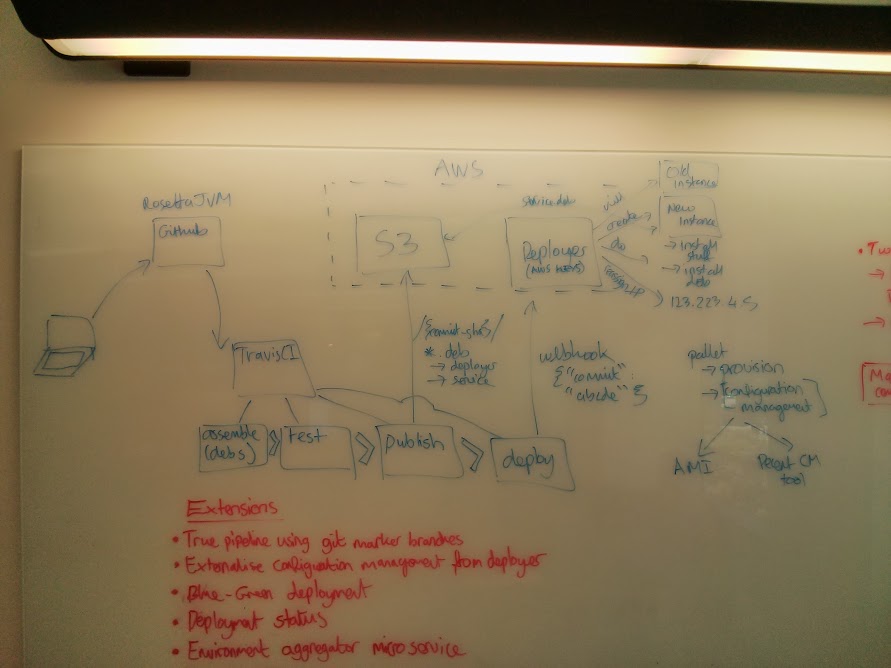 AWS
RosettaJVM
Github
S3
service.deb
Deployer
Old
instance
New
instance
create
→ install
stuff
→ install
deb
123.223.4.5
TravisCI
/{commit_sha}/
*.deb
→ deployer
→ service
webhook
{"commit":
"abcde"}
pallet
→ provision
→ configuration
management
AMI
Decent CM
tool
assemble
(debs)
test
publish
deploy
Extensions
• True pipeline using git marker branches
• Externalise configuration management from deployer
• Blue-Green deployment
• Deployment status
• Environment aggregator microservice